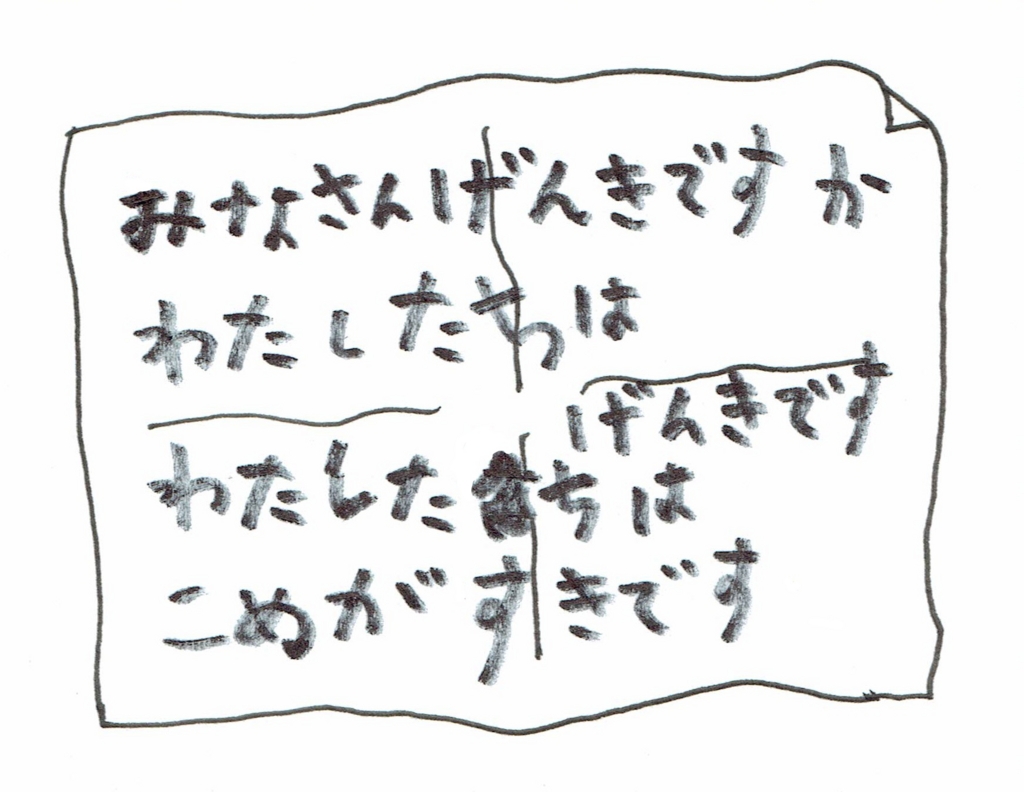 みなさんげんきですか
わたしたちは
げんきです
わたしたちは
こめがすきです